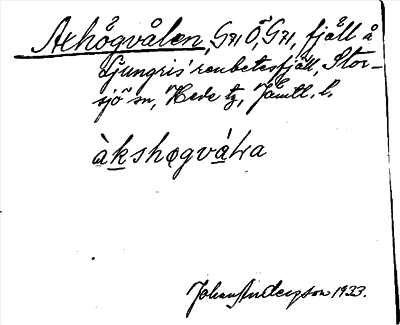 Axhögvålen, G71 Ö, G71, fjäll å
Ljungris' renbetesfjäll, Stor-
sjö sn, Hede tg, Jämtl. l.
àkshǫgvála
Johan Anderzson 1933.